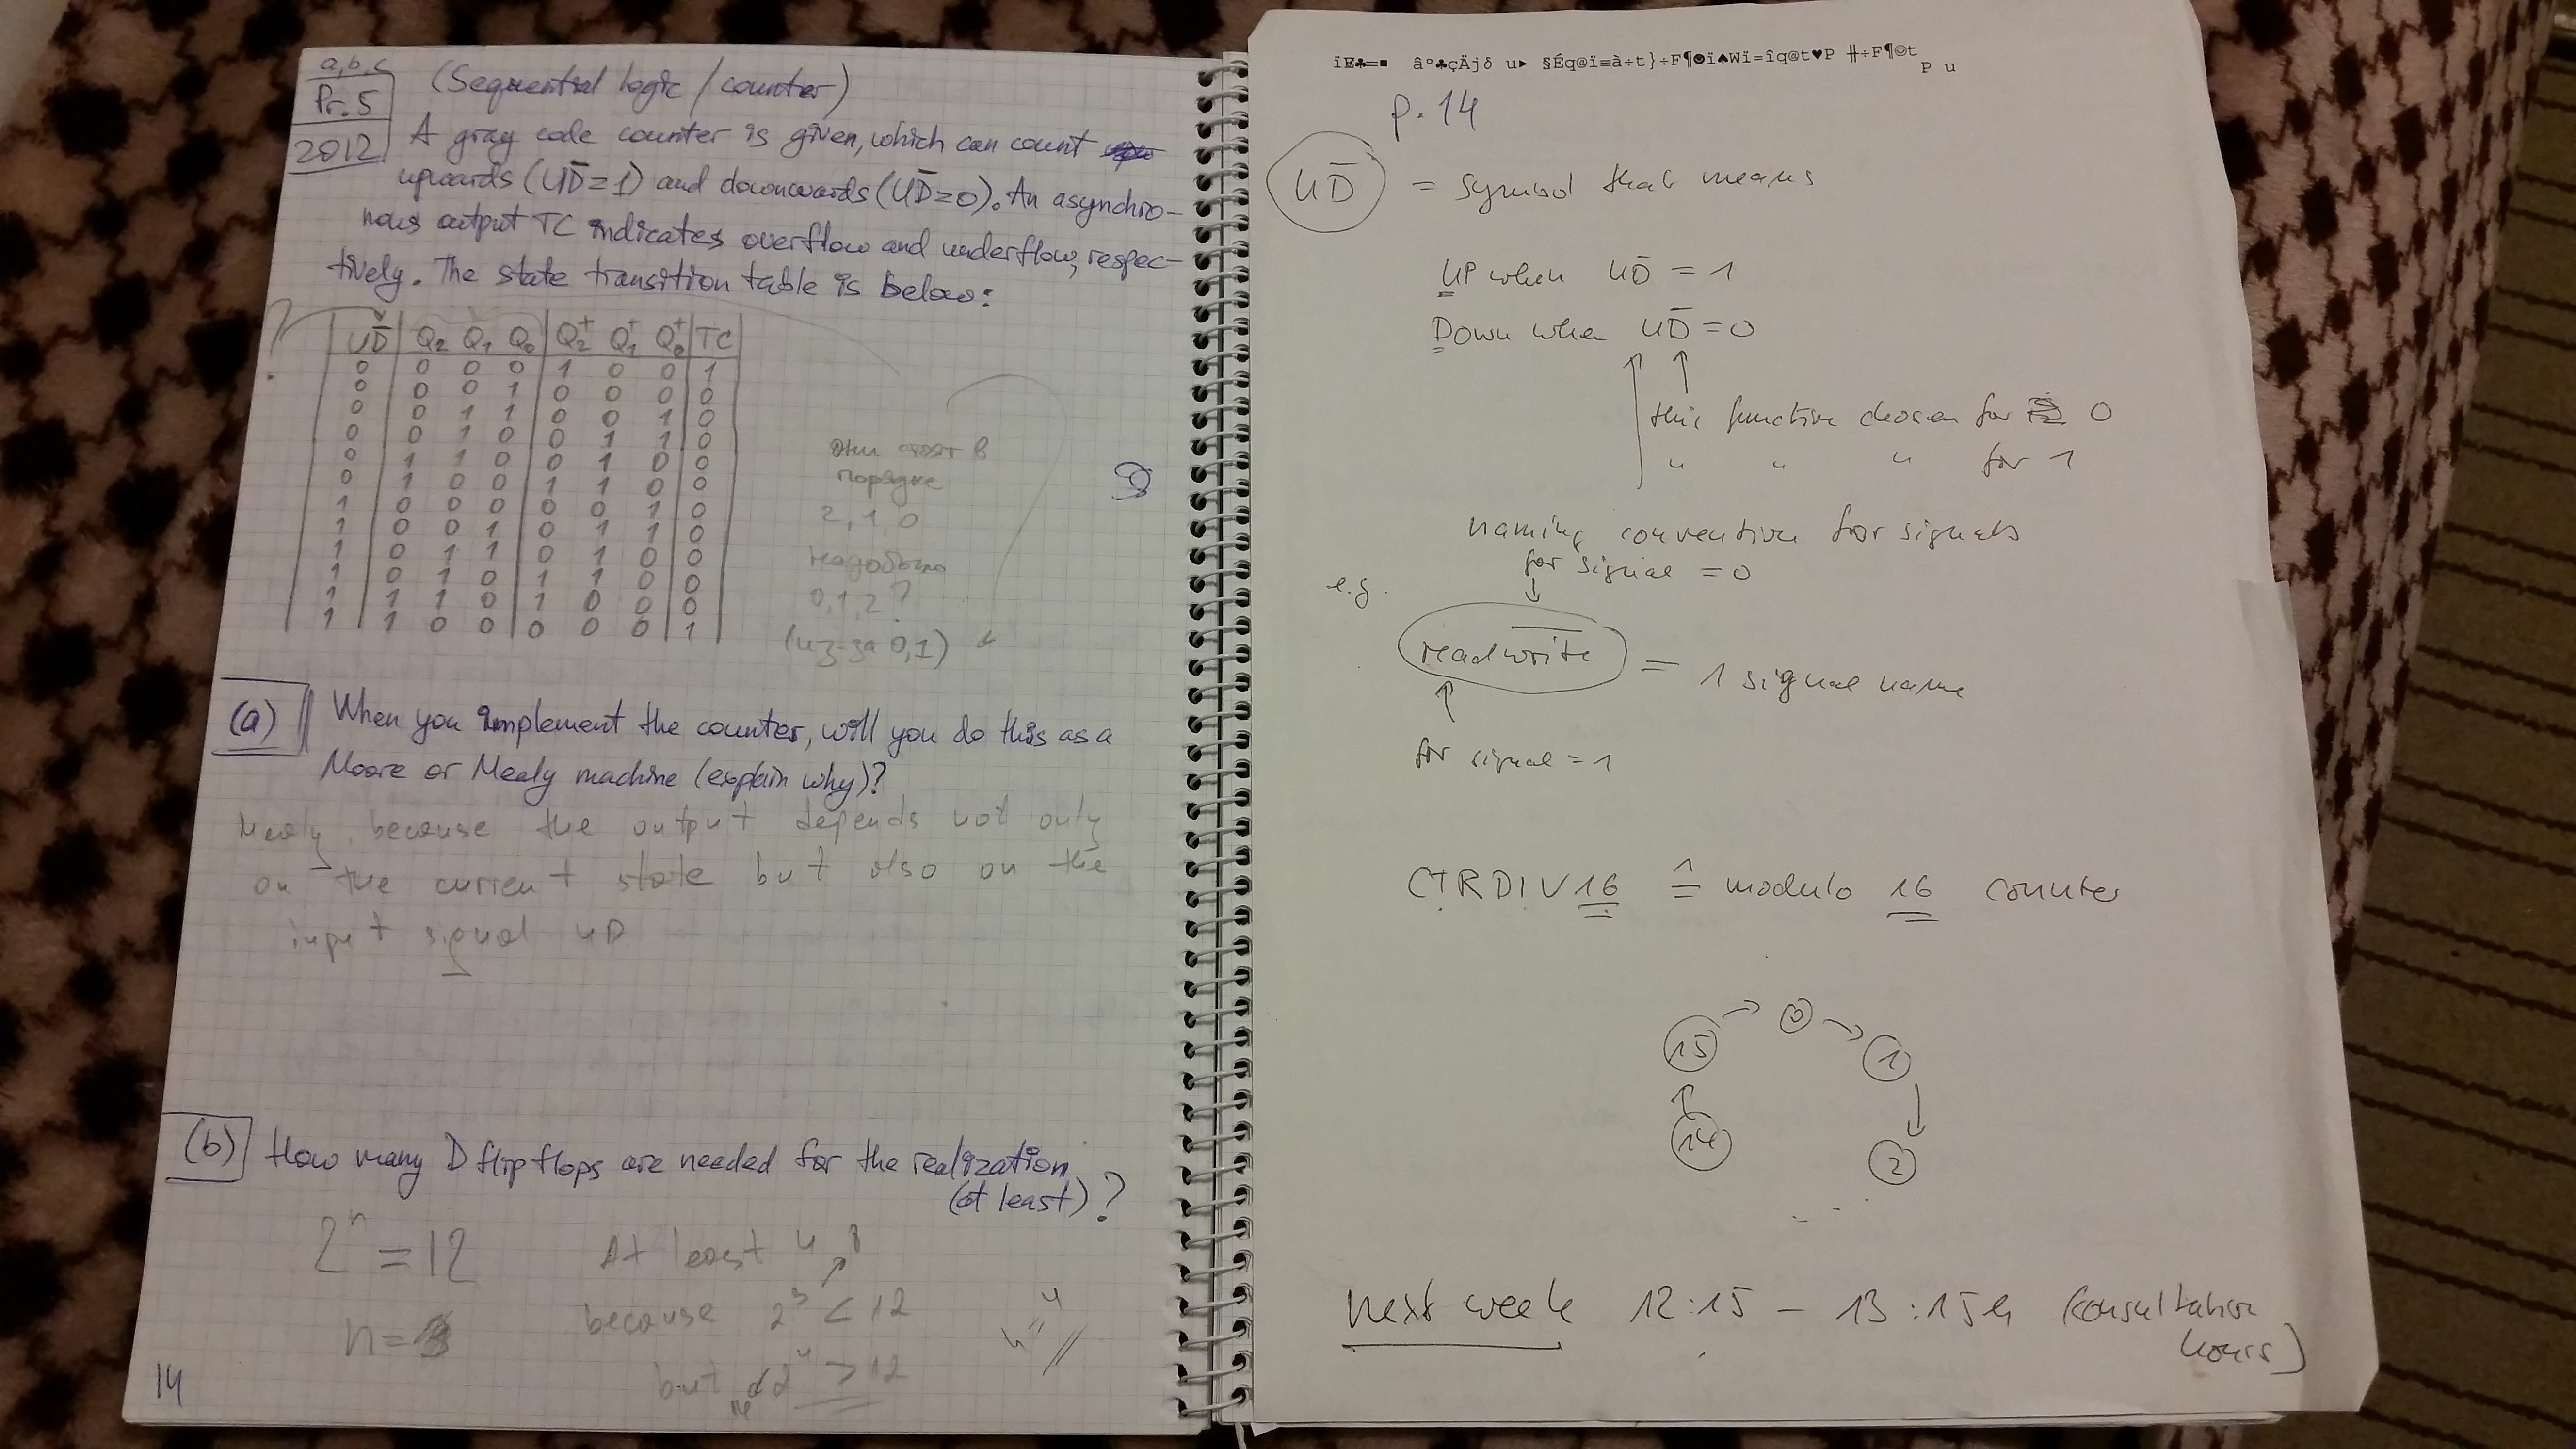 a,b,c
Pr. 5
2012
(Sequential logic / counter)
A gray code counter is given, which can count
upwards (UD̅=1) and downwards (UD̅=0). An asynchro-
nous output TC indicates overflow and underflow, respec-
tively. The state transition table is below:
UD̅ Q₂ Q₁ Q₀ Q₂⁺ Q₁⁺ Q₀⁺ TC
0 0 0 0 1 0 0 1
0 0 0 1 0 0 0 0
0 0 1 1 0 0 1 0
0 0 1 0 0 1 1 0
0 1 1 0 0 1 0 0
0 1 0 0 1 1 0 0
1 0 0 0 0 0 1 0
1 0 0 1 0 1 1 0
1 0 1 1 0 1 0 0
1 0 1 0 1 1 0 0
1 1 1 0 1 0 0 0
1 1 0 0 0 0 0 1
они стоят в
порядке
2, 1, 0
0, 1, 2?
(из-за 0,1)
(a) When you implement the counter, will you do this as a
Moore or Mealy machine (explain why)?
Mealy, because the output depends not only
on the current state but also on the
input signal UD
(b) How many D flipflops are needed for the realization
(at least)?
2ⁿ = 12
n = 3
At least 4
because 2³ < 12
8
but 2⁴ > 12
16
n = 4
14
p. 14
UD̅ = symbol that means
UP when UD̅ = 1
Down when UD̅ = 0
this function chosen for 0
" " " for 1
naming convention for signals
for signal = 0
e.g.
readw̅r̅i̅t̅e̅ = 1 signal name
for signal = 1
CTRDIV16 ≙ modulo 16 counter
15 0 1
14 2
next week 12:15 – 13:15h (consultation
hours)